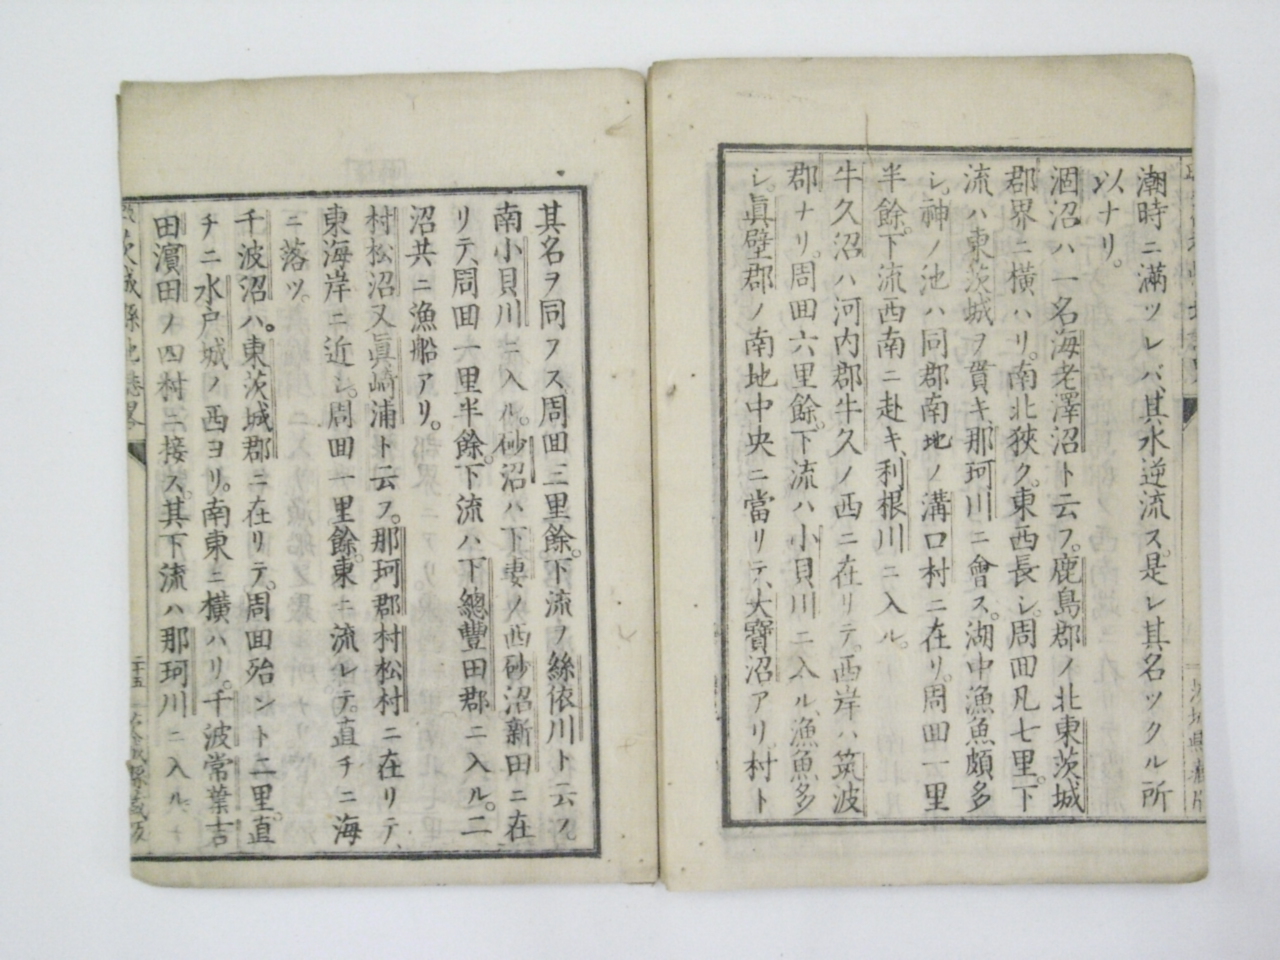 潮時ニ滿ツレバ、其水逆流ス。是レ其名ツクル所
以ナリ。
涸沼ハ一名海老澤沼ト云フ。鹿島郡ノ北東茨城
郡界ニ横ハリ。南北狹ク。東西長シ。周囬凡七里。下
流ハ東茨城ヲ貫キ、那珂川ニ會ス。湖中漁魚頗多
シ。神ノ池ハ同郡南地ノ溝口村ニ在リ。周囬一里
半餘。下流西南ニ赴キ、利根川ニ入ル。
牛久沼ハ河内郡牛久ノ西ニ在リテ。西岸ハ筑波
郡ナリ。周囬六里餘。下流ハ小貝川ニ入ル、漁魚多
シ。眞壁郡ノ南地中央ニ當リテ、大寶沼アリ。村ト
其名ヲ同フス周囬三里餘。下流ヲ絲依川ト云フ
南小貝川ニ入ル。砂沼ハ下妻ノ西砂沼新田ニ在
リテ、周囬一里半餘。下流ハ下總豐田郡ニ入ル。二
沼共ニ漁船アリ。
村松沼又眞崎浦ト云フ。那珂郡村松村ニ在リテ、
東海岸ニ近シ。周囬一里餘。東ニ流レテ。直チニ海
ニ落ツ。
千波沼ハ。東茨城郡ニ在リテ。周囬殆ント二里。直
チニ水户城ノ西ヨリ。南東ニ横ハリ。千波常葉吉
田濵田ノ四村ニ接ス。其下流ハ那珂川ニ入ル、ナ
茨城縣地誌畧
二十五
茨城縣藏版